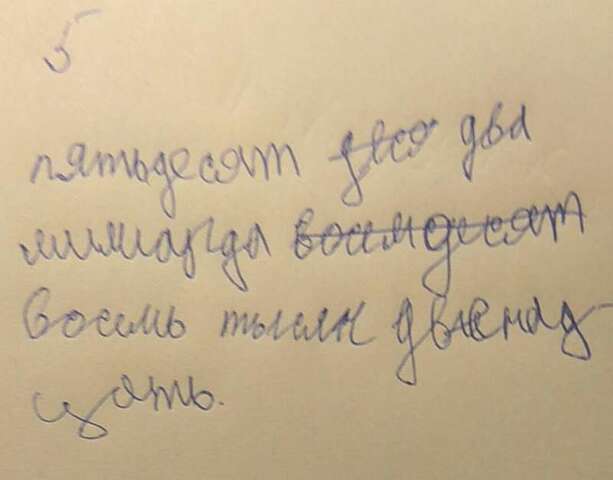 5
пятьдесят два
миллиарда восемдесят
восемь тысяч двенад
цать.